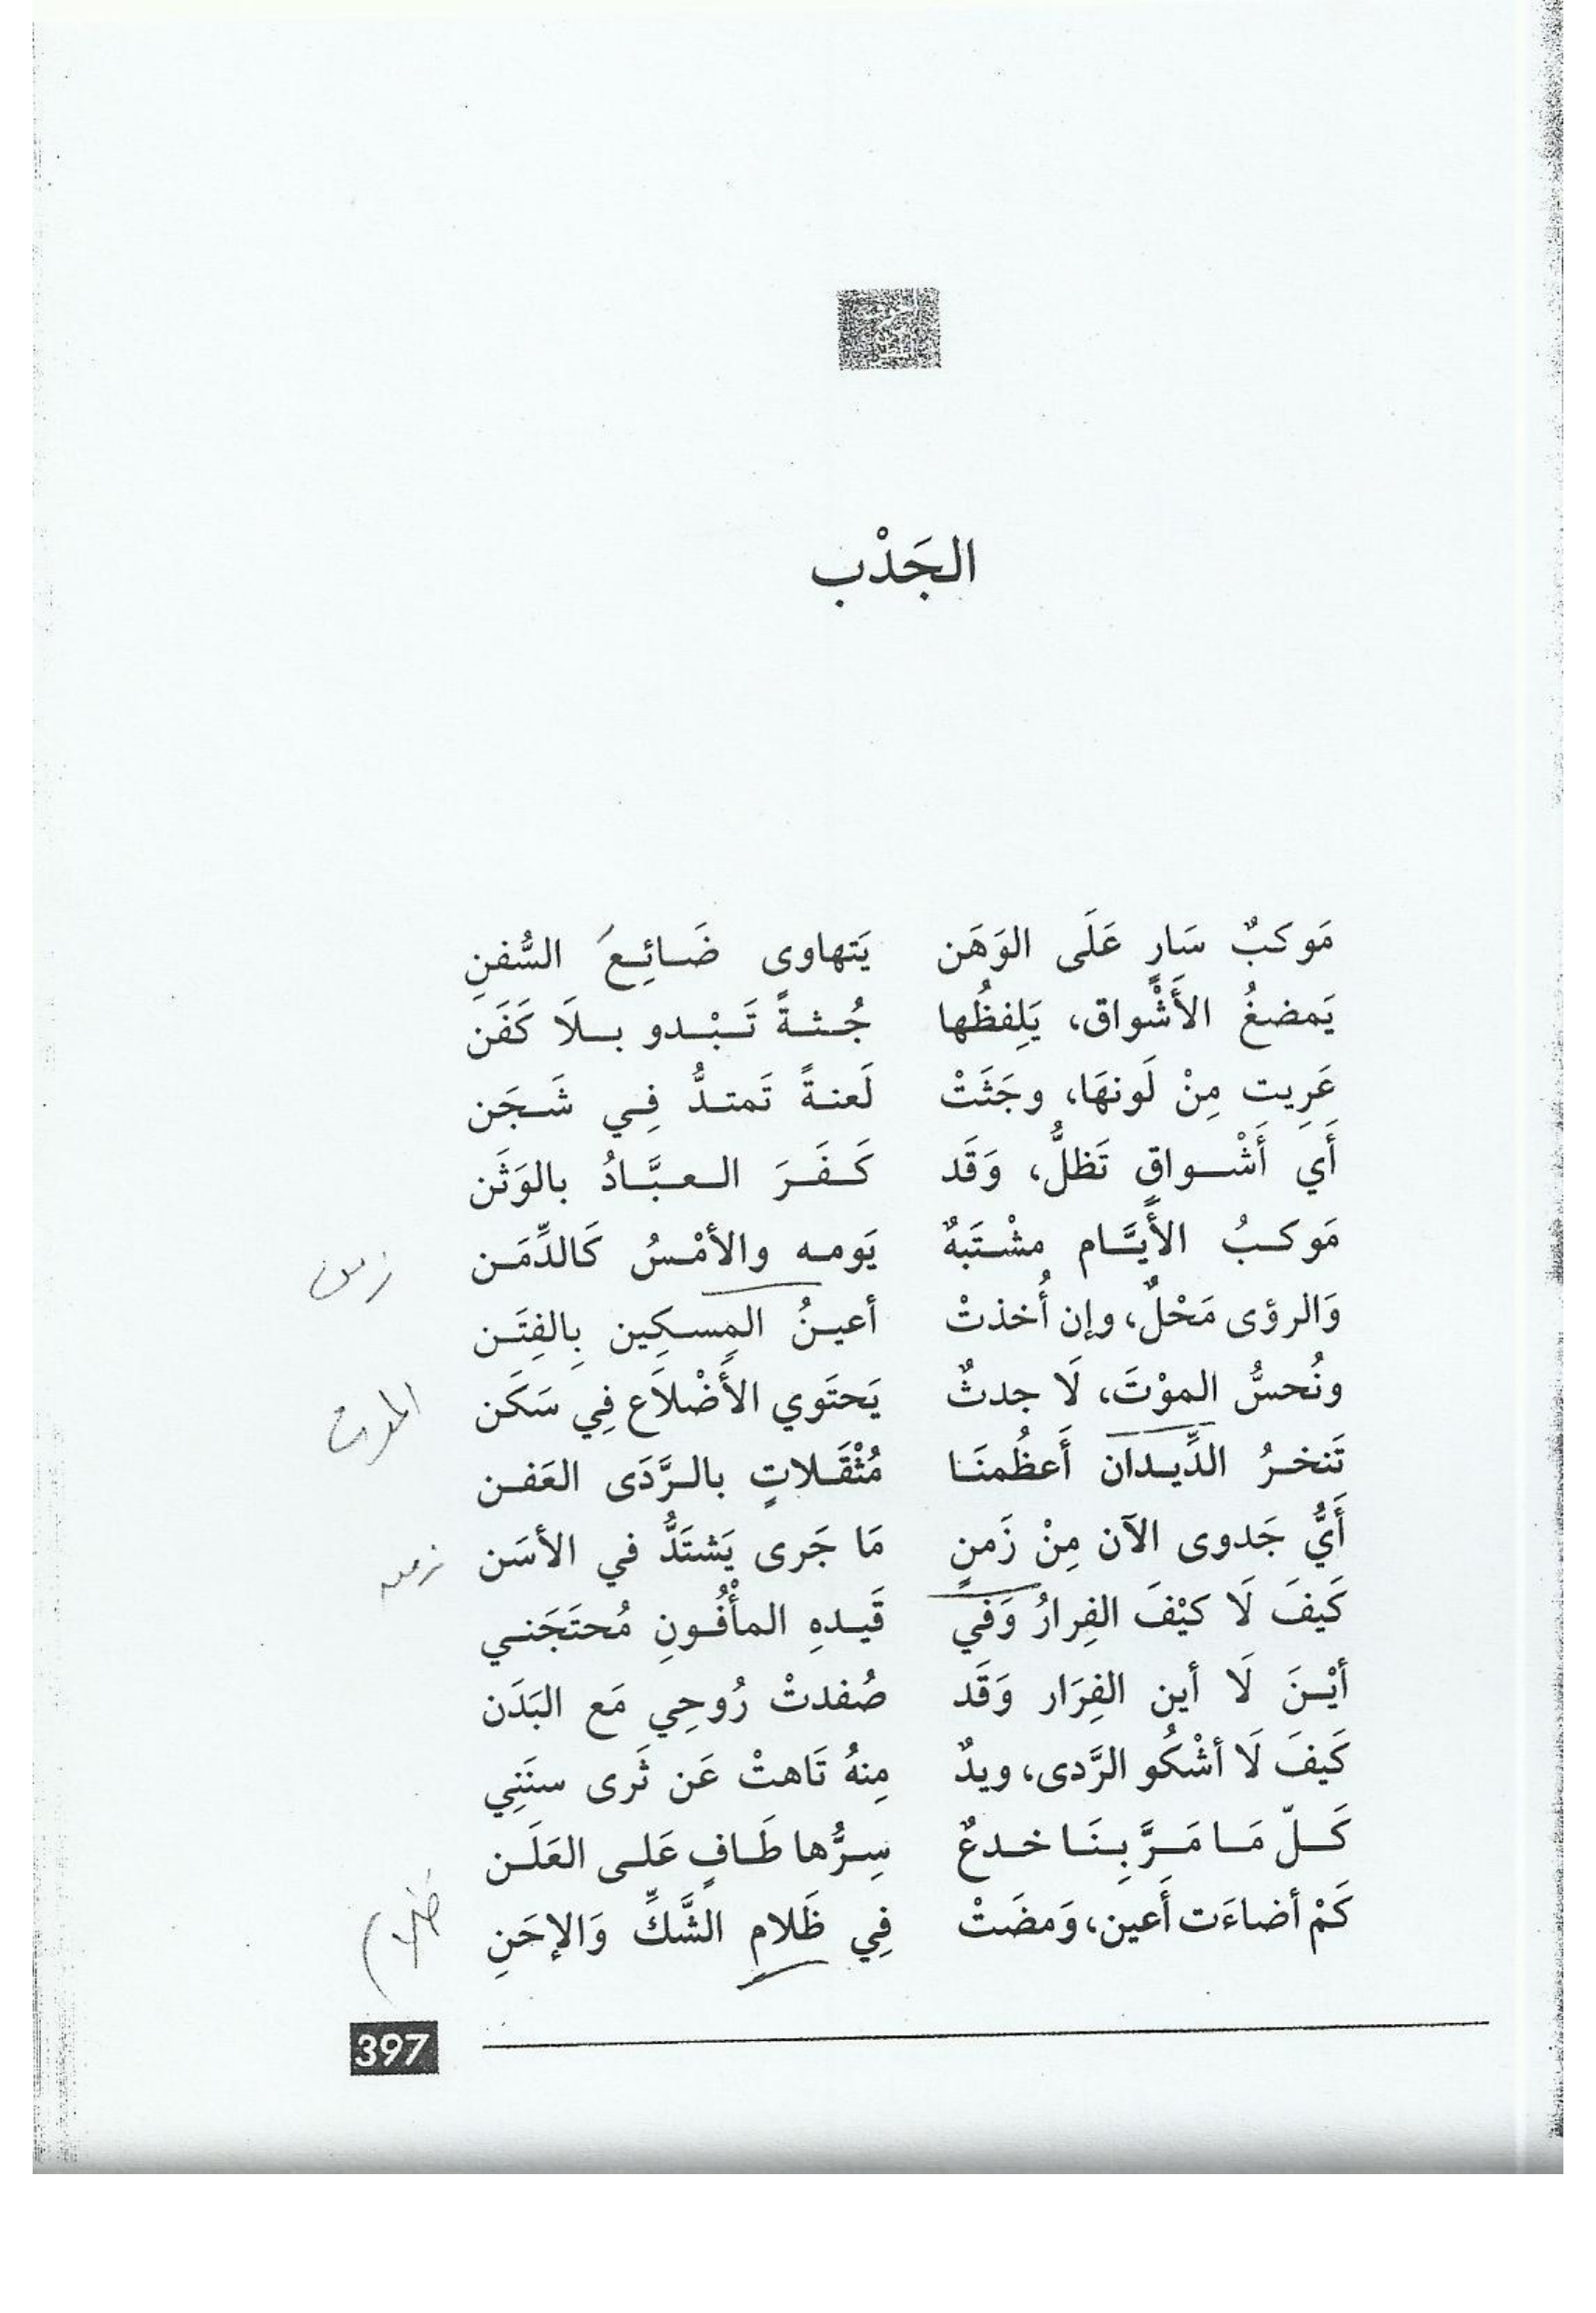 الجَدْب
مَوكبٌ سَارٍ عَلَى الوَهَن يَتهاوى ضَائِعَ السُّفنِ
يَمضغُ الأَشْواق، يَلِفظُها جُثةً تَبْدو بلَا كَفَن
عَرِيتِ مِنْ لَونهَا، وجَثَتْ لَعنةً تَمتدُّ فِي شَجَن
أَي أَشْواقٍ تَظلُّ، وَقَد كَفَرَ العبَّادُ بالوَثَن
مَوكبُ الأَيَّام مشْتَبهٌ يَومه والأمْسُ كَالدِّمَن زمن
وَالرؤى مَحْلٌ، وإن أُخذتْ أعينُ المِسكِين بِالفِتَن
ونُحسُّ الموْتَ، لَا جدثٌ يَحتَوي الأَضْلاَع فِي سَكَن الموت
تَنخرُ الدِّيدان أَعظُمنَا مُثْقَلاتٍ بالرَّدَى العَفن
أَيُّ جَدوى الآن مِنْ زَمنٍ مَا جَرى يَشتَدُّ في الأسَن زمن
كَيفَ لَا كيْفَ الفِرارُ وَفي قَيدهِ المأْفُونِ مُحتَجَني
أيْنَ لَا أين الفِرَار وَقَد صُفدتْ رُوحِي مَع البَدَن
كَيفَ لَا أشْكُو الرَّدى، ويدٌ مِنهُ تَاهتْ عَن ثَرى سنَنِي
كَلّ مَا مَرَّ بِنَا خدعٌ سِرُّها طَافٍ عَلى العَلَن
كَمْ أضاءَت أَعين، وَمضَتْ فِي ظَلامِ الشَّكِّ وَالإحَنِ ظلام
397